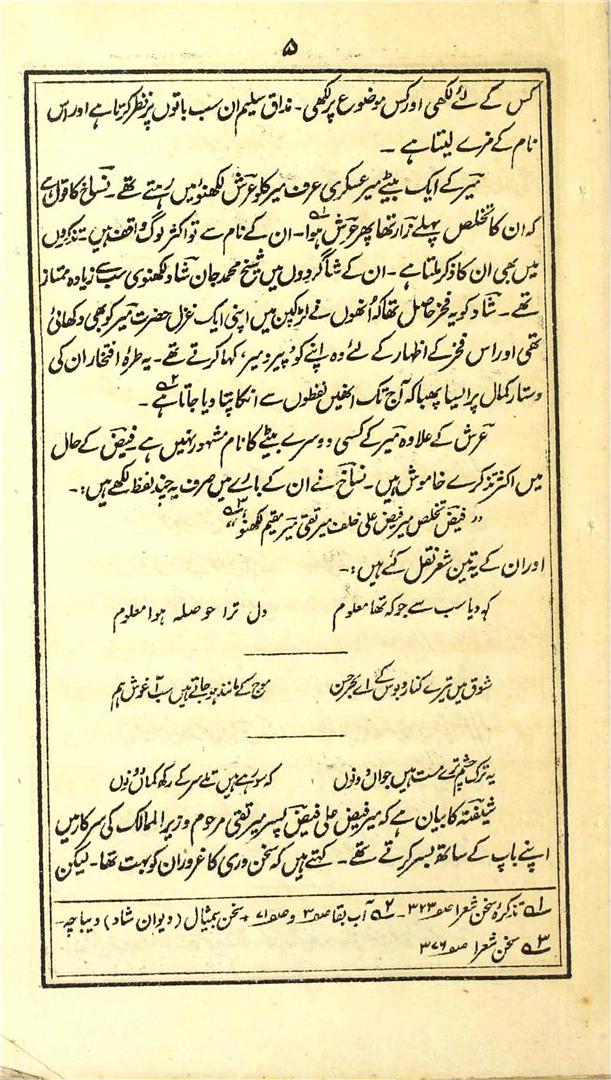 ۵
کس کے لئے لکھی اور کس موضوع پر لکھی ۔ مذاق سلیم ان سب باتوں پر نظر کرتا ہے اور اس
نام کے مزے لیتا ہے ۔
میر کے ایک بیٹے میر عسکری عرف میر کلو عرش لکھنؤ میں رہتے تھے ۔ نساخ کا قول ہے
کہ ان کا تخلص پہلے زار تھا پھر عرش ہوا ۱؎ ۔ ان کے نام سے تو اکثر لوگ واقف ہیں ۔ تذکروں
میں بھی ان کا ذکر ملتا ہے ۔ ان کے شاگردوں میں شیخ محمد جان شاد لکھنوی سب سے زیادہ ممتاز
تھے ۔ شاد کو یہ فخر حاصل تھا کہ اُنھوں نے لڑکپن میں اپنی ایک غزل حضرت میر کو بھی دکھائی
تھی اور اس فخر کے اظہار کے لئے وہ اپنے کو پیرو میر، کہا کرتے تھے ۔ یہ طرۂ افتخار ان کی
دستار کمال پر ایسا پھبا کہ آج تک انھیں لفظوں سے انکا پتا دیا جاتا ہے ۲؎ ۔
عرش کے علاوہ میر کے کسی دوسرے بیٹے کا نام مشہور نہیں ہے ۔ فیض کے حال
میں اکثر تذکرے خاموش ہیں ۔ نساخ نے ان کے بارے میں صرف یہ چند لفظ لکھے ہیں :۔
” فیض تخلص میر فیض علی خلف میر تقی میر مقیم لکھنؤ ۳؎ “
اور ان کے تین شعر نقل کئے ہیں :۔
کہہ دیا سب سے جو کہ تھا معلوم دل ترا حوصلہ ہوا معلوم
شوق میں تیرے کنار و بوس کے اے بحر حسن موج کے مانند ہو جاتے ہیں سب آغوش ہم
یہ ترک چشم ترے مست ہیں جواں دونوں کہ سو رہے ہیں تلے سر کے رکھ کماں دونوں
شیفتہ کا بیان ہے کہ میر فیض علی فیض پسر میر تقی مرحوم وزیر الممالک کی سرکار میں
اپنے باپ کے ساتھ بسر کرتے تھے ۔ کہتے ہیں کہ سخن وری کا غرور ان کو بہت تھا ۔ لیکن
۱؎ تذکرۂ سخن شعرا صفحہ ۳۲۳ ۔ ۲؎ آب بقا صفحہ ۳ و صفحہ ۷۱ + سخن بے مثال (دیوان شاد) دیباچہ
۳؎ سخن شعرا صفحہ ۳۷۶